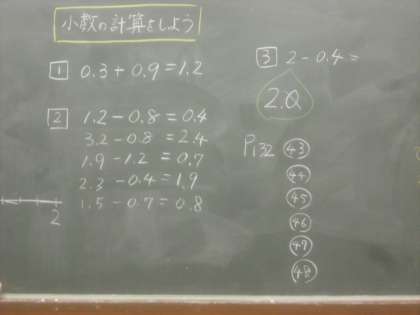 小数の計算をしよう
1 0.3+0.9=1.2
2 1.2-0.8=0.4
3.2-0.8=2.4
1.9-1.2=0.7
2.3-0.4=1.9
1.5-0.7=0.8
2
3 2-0.4=
2.0
P132 43
44
45
46
47
48